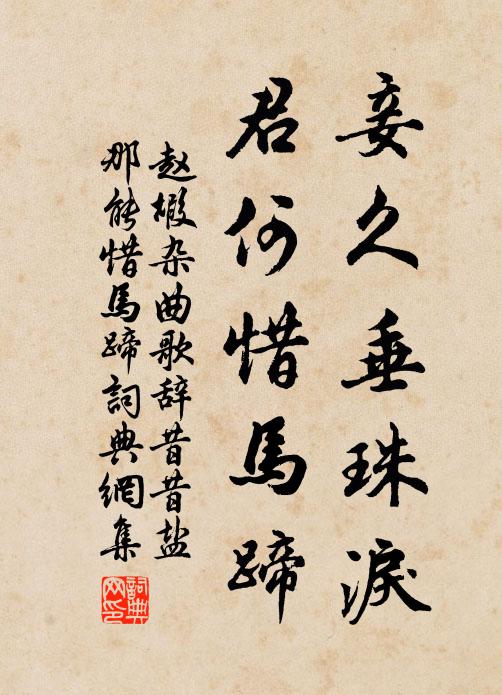 妾久垂珠淚
君何惜馬蹄
赵嘏杂曲歌辞昔昔盐
那能惜馬蹄詞典網集
詞典网印